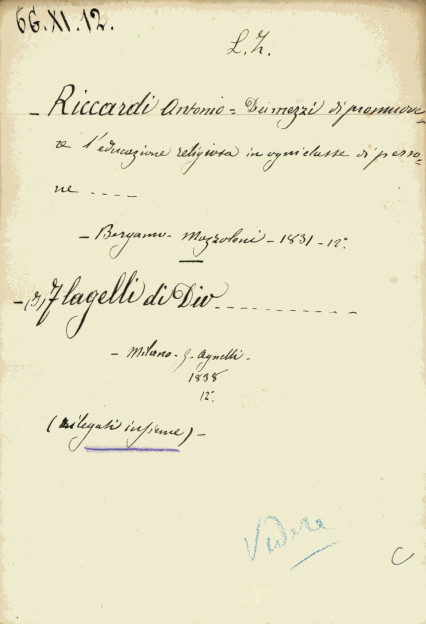 66.XI.12.
L.Z.
- Riccardi Antonio = Dei mezzi di promuove-
re l'educazione religiosa in ogni classe di perso-
ne ----
- Bergamo - Mazzoleni - 1831 - 12°.
- (3) Flagelli di Dio ------------
- Milano - G. Agnelli.
1838
12°.
(rilegati insieme) -
Videre
C